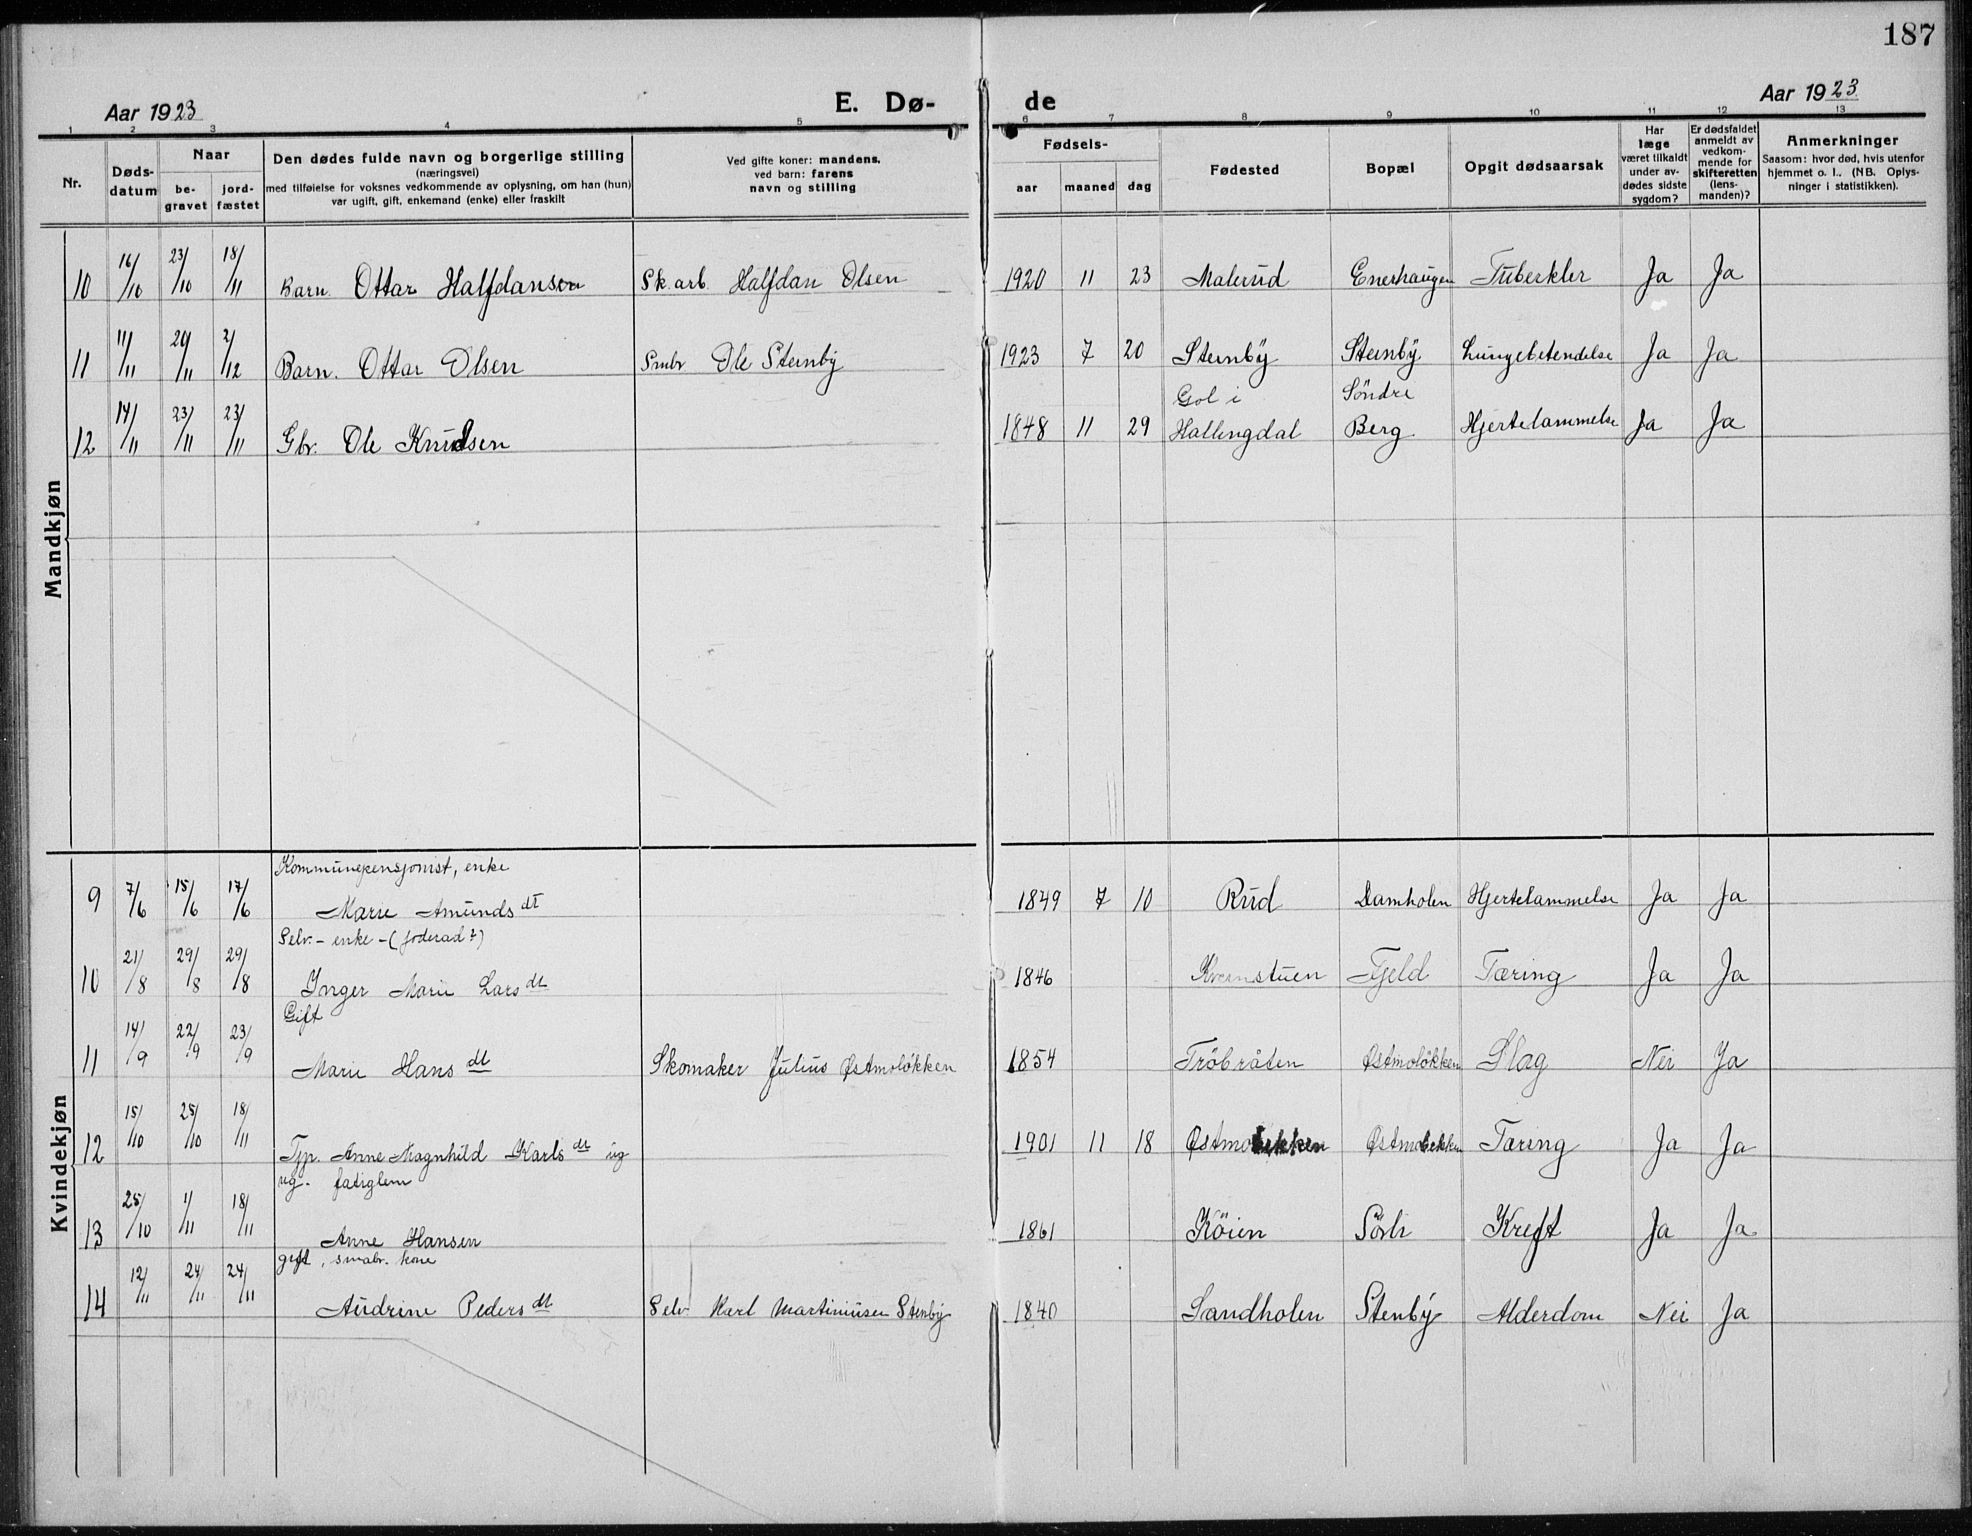 187
Aar 1923 E. Dø- de Aar 1923
1 2 3 4 5 6 7 8 9 10 11 12 13
Nr.
Døds-
datum
Naar
be-
gravet
jord-
fæstet
Den dødes fulde navn og borgerlige stilling
(næringsvei)
med tilføielse for voksnes vedkommende av oplysning, om han (hun)
var ugift, gift, enkemand (enke) eller fraskilt
Ved gifte koner: mandens,
ved barn: farens
navn og stilling
Fødsels-
aar maaned dag
Fødested
Bopæl
Opgit dødsaarsak
Har
læge
været tilkaldt
under av-
dødes sidste
sygdom?
Er dødsfaldet
anmeldt av
vedkom-
mende for
skifteretten
(lens-
manden)?
Anmerkninger
Saasom: hvor død, hvis utenfor
hjemmet o. l.. (NB. Oplys-
ninger i statistikken).
Mandkjøn
10 16/10 23/10 18/11 Barn. Ottar Halfdansen Sk. arb. Halfdan Olsen 1920 11 23 Malerud Enerhaugen Tuberkler Ja Ja
11 11/11 20/11 2/12 Barn. Ottar Olsen Smbr Ole Stenby 1923 7 20 Stenby Stenby Lungebetendelse Ja Ja
Gol i Söndre
12 14/11 23/11 23/11 Gbr. Ole Knudsen 1848 11 29 Hallingdal Berg Hjertelammelse Ja Ja
Kvindekjøn
Kommunepensjonist, enke
9 7/6 15/6 17/6 Marie Amunds dt 1849 7 10 Rud Damholen Hjertelammelse Ja Ja
Selv. - enke - (foderad?)
10 21/8 29/8 29/8 Inger Marie Lars dt 1846 Kvernstuen Fjeld Tæring Ja Ja
Gift
11 14/9 22/9 23/9 Marie Hans dt Skomaker Julius Østmoløkken 1854 Tröbråten Østmoløkken Slag Nei Ja
12 15/10 25/10 18/11 Tjp. Anne Magnhild Karls dt ug 1901 11 18 Østmobekken Østmobekken Tæring Ja Ja
ug. fatiglem
13 25/10 1/11 18/11 Anne Hansen 1861 Köien Sörli Kreft Ja Ja
gift, smabr. kone
14 12/11 24/11 24/11 Audrine Peders dt Selv. Karl Martiniusen Stenby 1840 Sandholen Stenby Alderdom Nei Ja